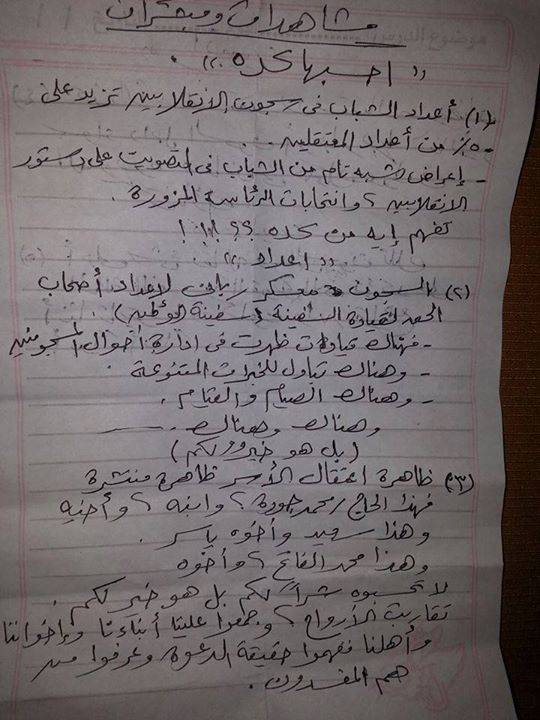 مشاهدات ومبشرات
" احسبها كده "
(١) أعداد الشباب فى سجون الانقلابيين تزيد على
٥٠٪ من أعداد المعتقلين.
- إعراض شبه تام من الشباب فى التصويت على دستور
الانقلابيين، وانتخابات الرئاسة المزورة.
تفهم إيه من كده ؟؟ !!
" إعداد "
(٢) السجون معسكر ربانى لإعداد أصحاب
الحق لقيادة السفينة (سفينة الوطن).
- فهناك قيادات ظهرت فى إدارة أحوال المسجونين
- وهناك تبادل للخبرات المتنوعة
- وهناك الصيام والقيام.
وهناك وهناك
(بل هو خير لكم)
(٣) ظاهرة اعتقال الأسر ظاهرة منتشرة
فهذا الحاج / محمد جودة، وابنه، وأخيه
وهذا سعيد وأخوه ياسر.
وهذا محمد الفاتح، وأخوه
لا تحسبوه شراً لكم بل هو خير لكم.
تقاربت الأرواح، وجمعوا علينا أبناءنا وإخواننا
وأهلنا ففهموا حقيقة الدعوة وعرفوا من
هم المفسدون.